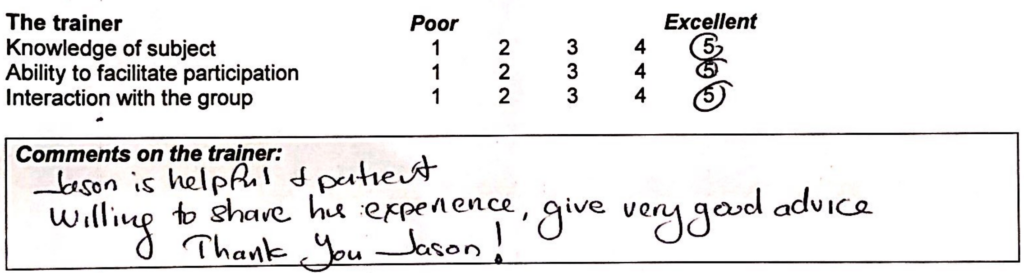 The trainer Poor Excellent
Knowledge of subject 1 2 3 4 5
Ability to facilitate participation 1 2 3 4 5
Interaction with the group 1 2 3 4 5
Comments on the trainer:
Jason is helpful & patient
Willing to share his experience, give very good advice
Thank You Jason!